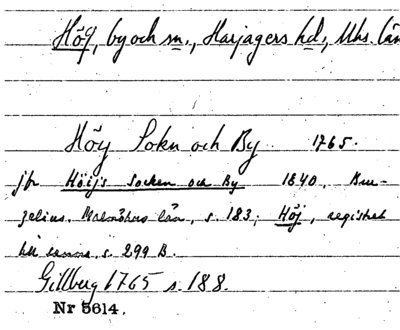 Hög, by och sn., Harjagers hd, Mhs. län
Höy Sokn och By 1765.
jfr Höijs Socken och By 1840, Brun-
zelius. Malmöhus län, s. 183; Höj, registret
till samma, s. 299 B.
Gillberg 1765 s. 188.
Nr 5614.